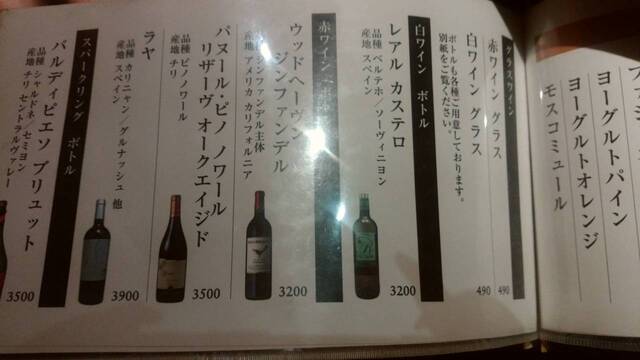 ヨーグルトパイン
ヨーグルトオレンジ
モスコミュール
グラスワイン
赤ワイン グラス
490
白ワイン グラス
490
ボトルも各種ご用意しております。
別紙をご覧ください。
白ワイン ボトル
レアル カステロ
品種 ベルデホ／ソーヴィニヨン
産地 スペイン
3200
赤ワイン ボトル
ウッドヘーヴン
ジンファンデル
品種 ジンファンデル主体
産地 アメリカ カリフォルニア
3200
パヌール・ピノ ノワール
リザーヴ オークエイジド
品種 ピノノワール
産地 チリ
3500
ラヤ
品種 カリニャン／グルナッシュ 他
産地 スペイン
3900
スパークリング ボトル
バルディビエソ ブリュット
品種 シャルドネ／セミヨン
産地 チリ セントラルヴァレー
3500